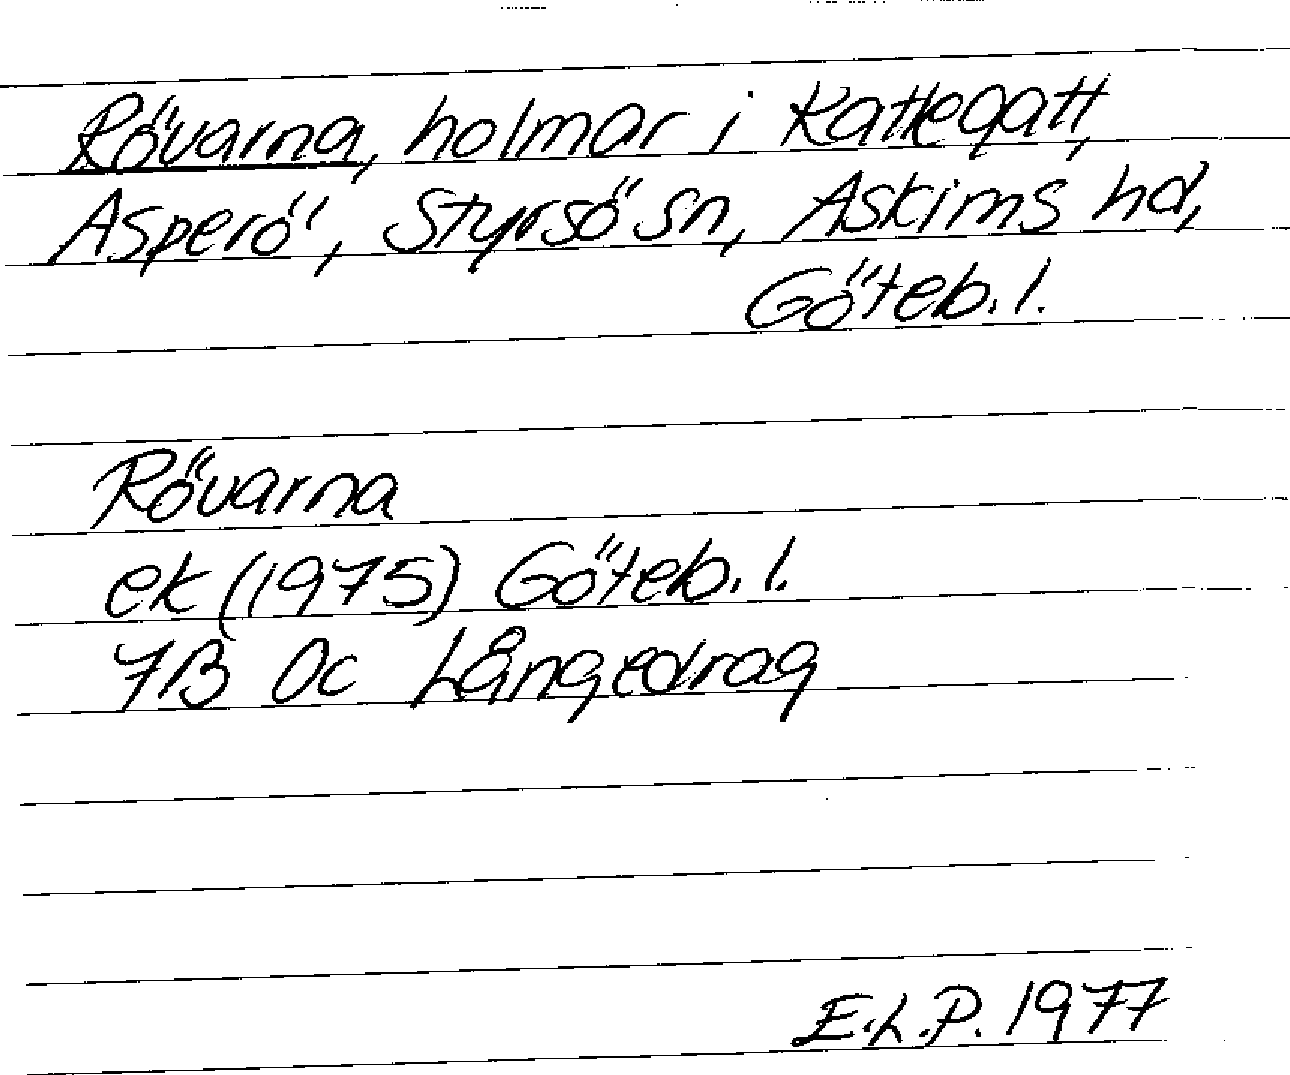 Rövarna, holmar i Kattegatt,
Asperö, Styrsö sn, Askims hd,
Göteb. l.
Rövarna
ek (1975) Göteb. l.
7B 0c Långedrag
E.L.P. 1977